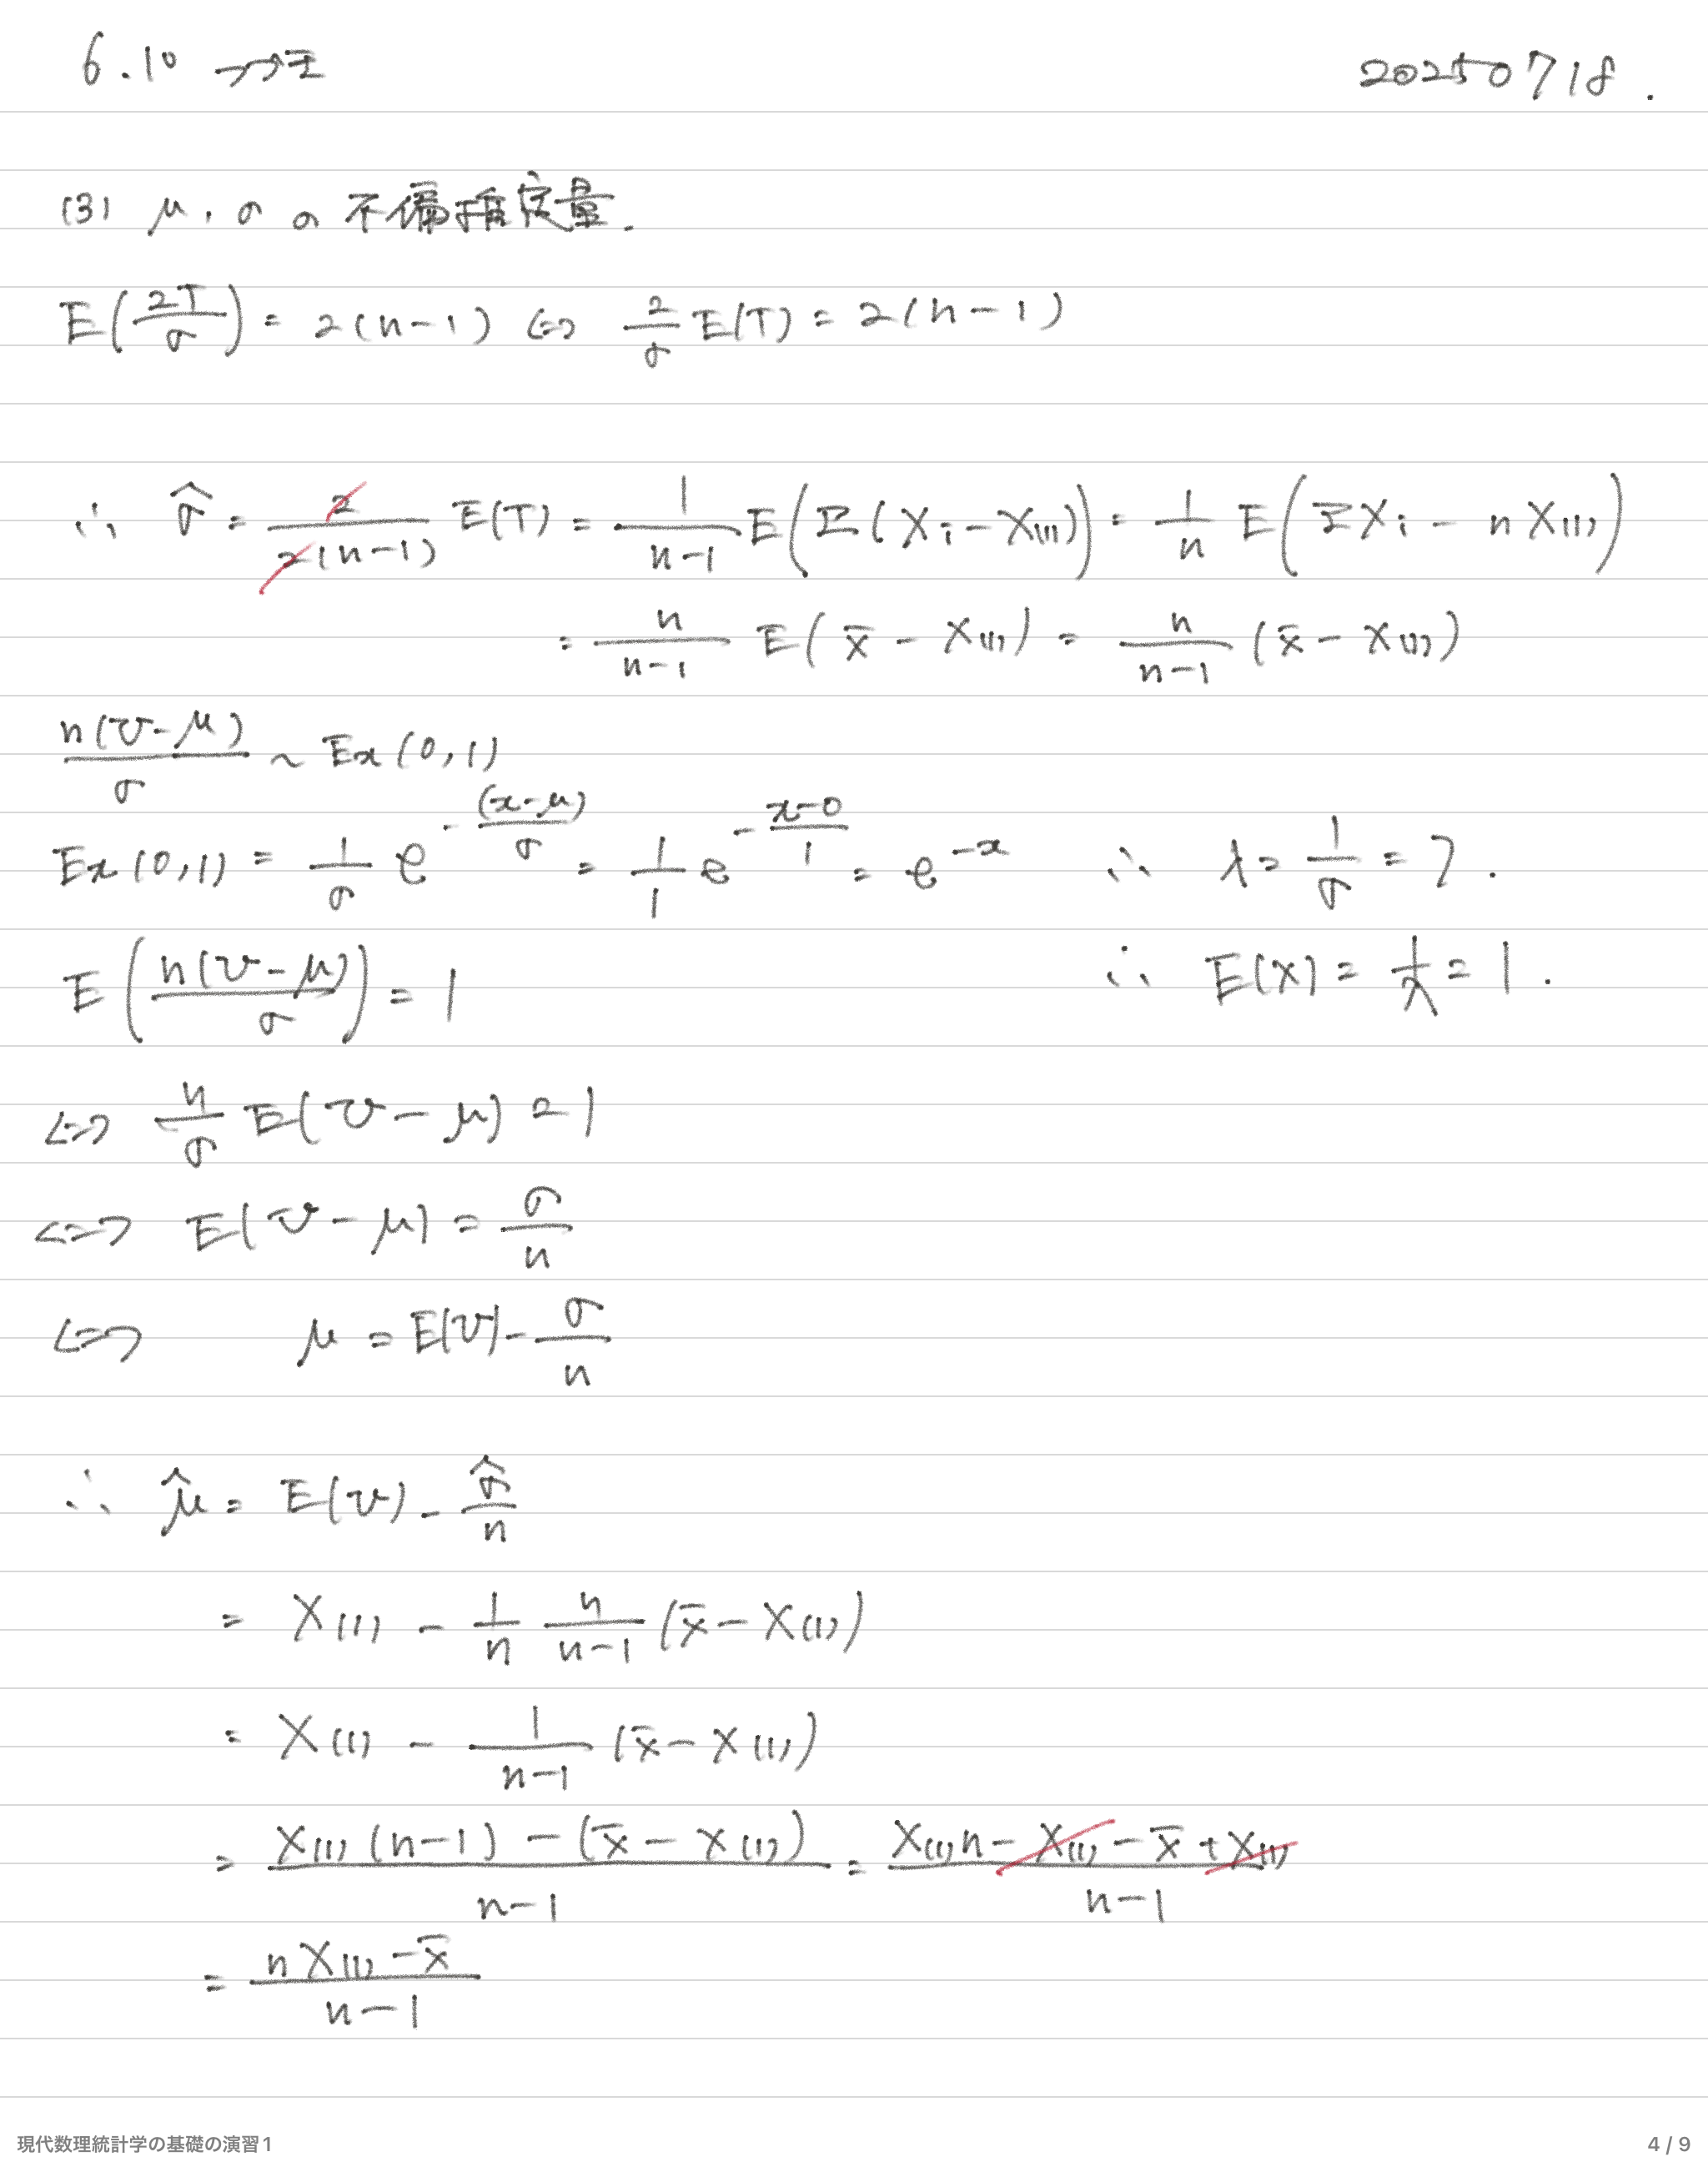 6.10 つづき
20250718.
(3) μ, σ の 不偏推定量.
E(2T/σ) = 2(n-1) ⇔ 2/σ E(T) = 2(n-1)
∴ σ̂ = 2/2(n-1) E(T) = 1/n-1 E(Σ(Xi-X(1))) = 1/n E(ΣXi - nX(1))
= n/n-1 E(x̄ - X(1)) = n/n-1 (x̄ - X(1))
n(U-μ)/σ ~ Ex(0,1)
Ex(0,1) = 1/σ e^-(x-μ)/σ = 1/1 e^-x-0/1 = e^-x ∴ λ = 1/σ = 7.
E(n(U-μ)/σ) = 1 ∴ E(X) = 1/λ = 1.
⇔ n/σ E(U-μ) = 1
⇔ E(U-μ) = σ/n
⇔ μ = E(U) - σ/n
∴ μ̂ = E(U) - σ̂/n
= X(1) - 1/n n/n-1 (x̄ - X(1))
= X(1) - 1/n-1 (x̄ - X(1))
= X(1)(n-1) - (x̄ - X(1))/n-1 = X(1)n - X(1) - x̄ + X(1)/n-1
= nX(1) - x̄/n-1
現代数理統計学の基礎の演習1
4 / 9